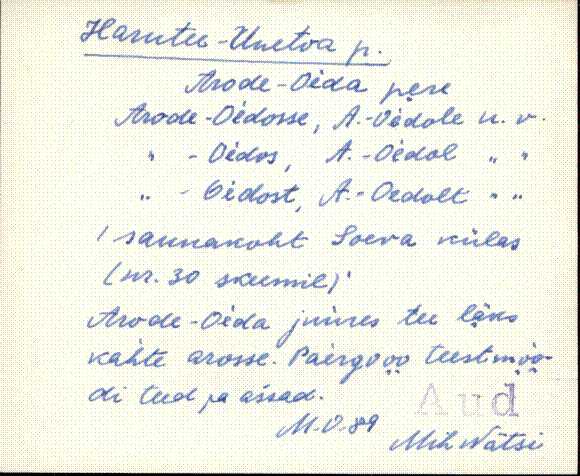 Harutee-Unetva p.
Arode-Oèda pere
Arode-Oèdosse, A.-Oèdole n. v.
" -Oèdos, A.-Oèdol " "
" -Oèdost, A.-Oedolt " "
/ saunakoht Soeva külas
(nr. 30 skeemil)/
Arode-Oèda juures tee läks
kahte arosse. Paèrgo
di teed ja assad.
M.V.-89 Mih Nätsi
Aud